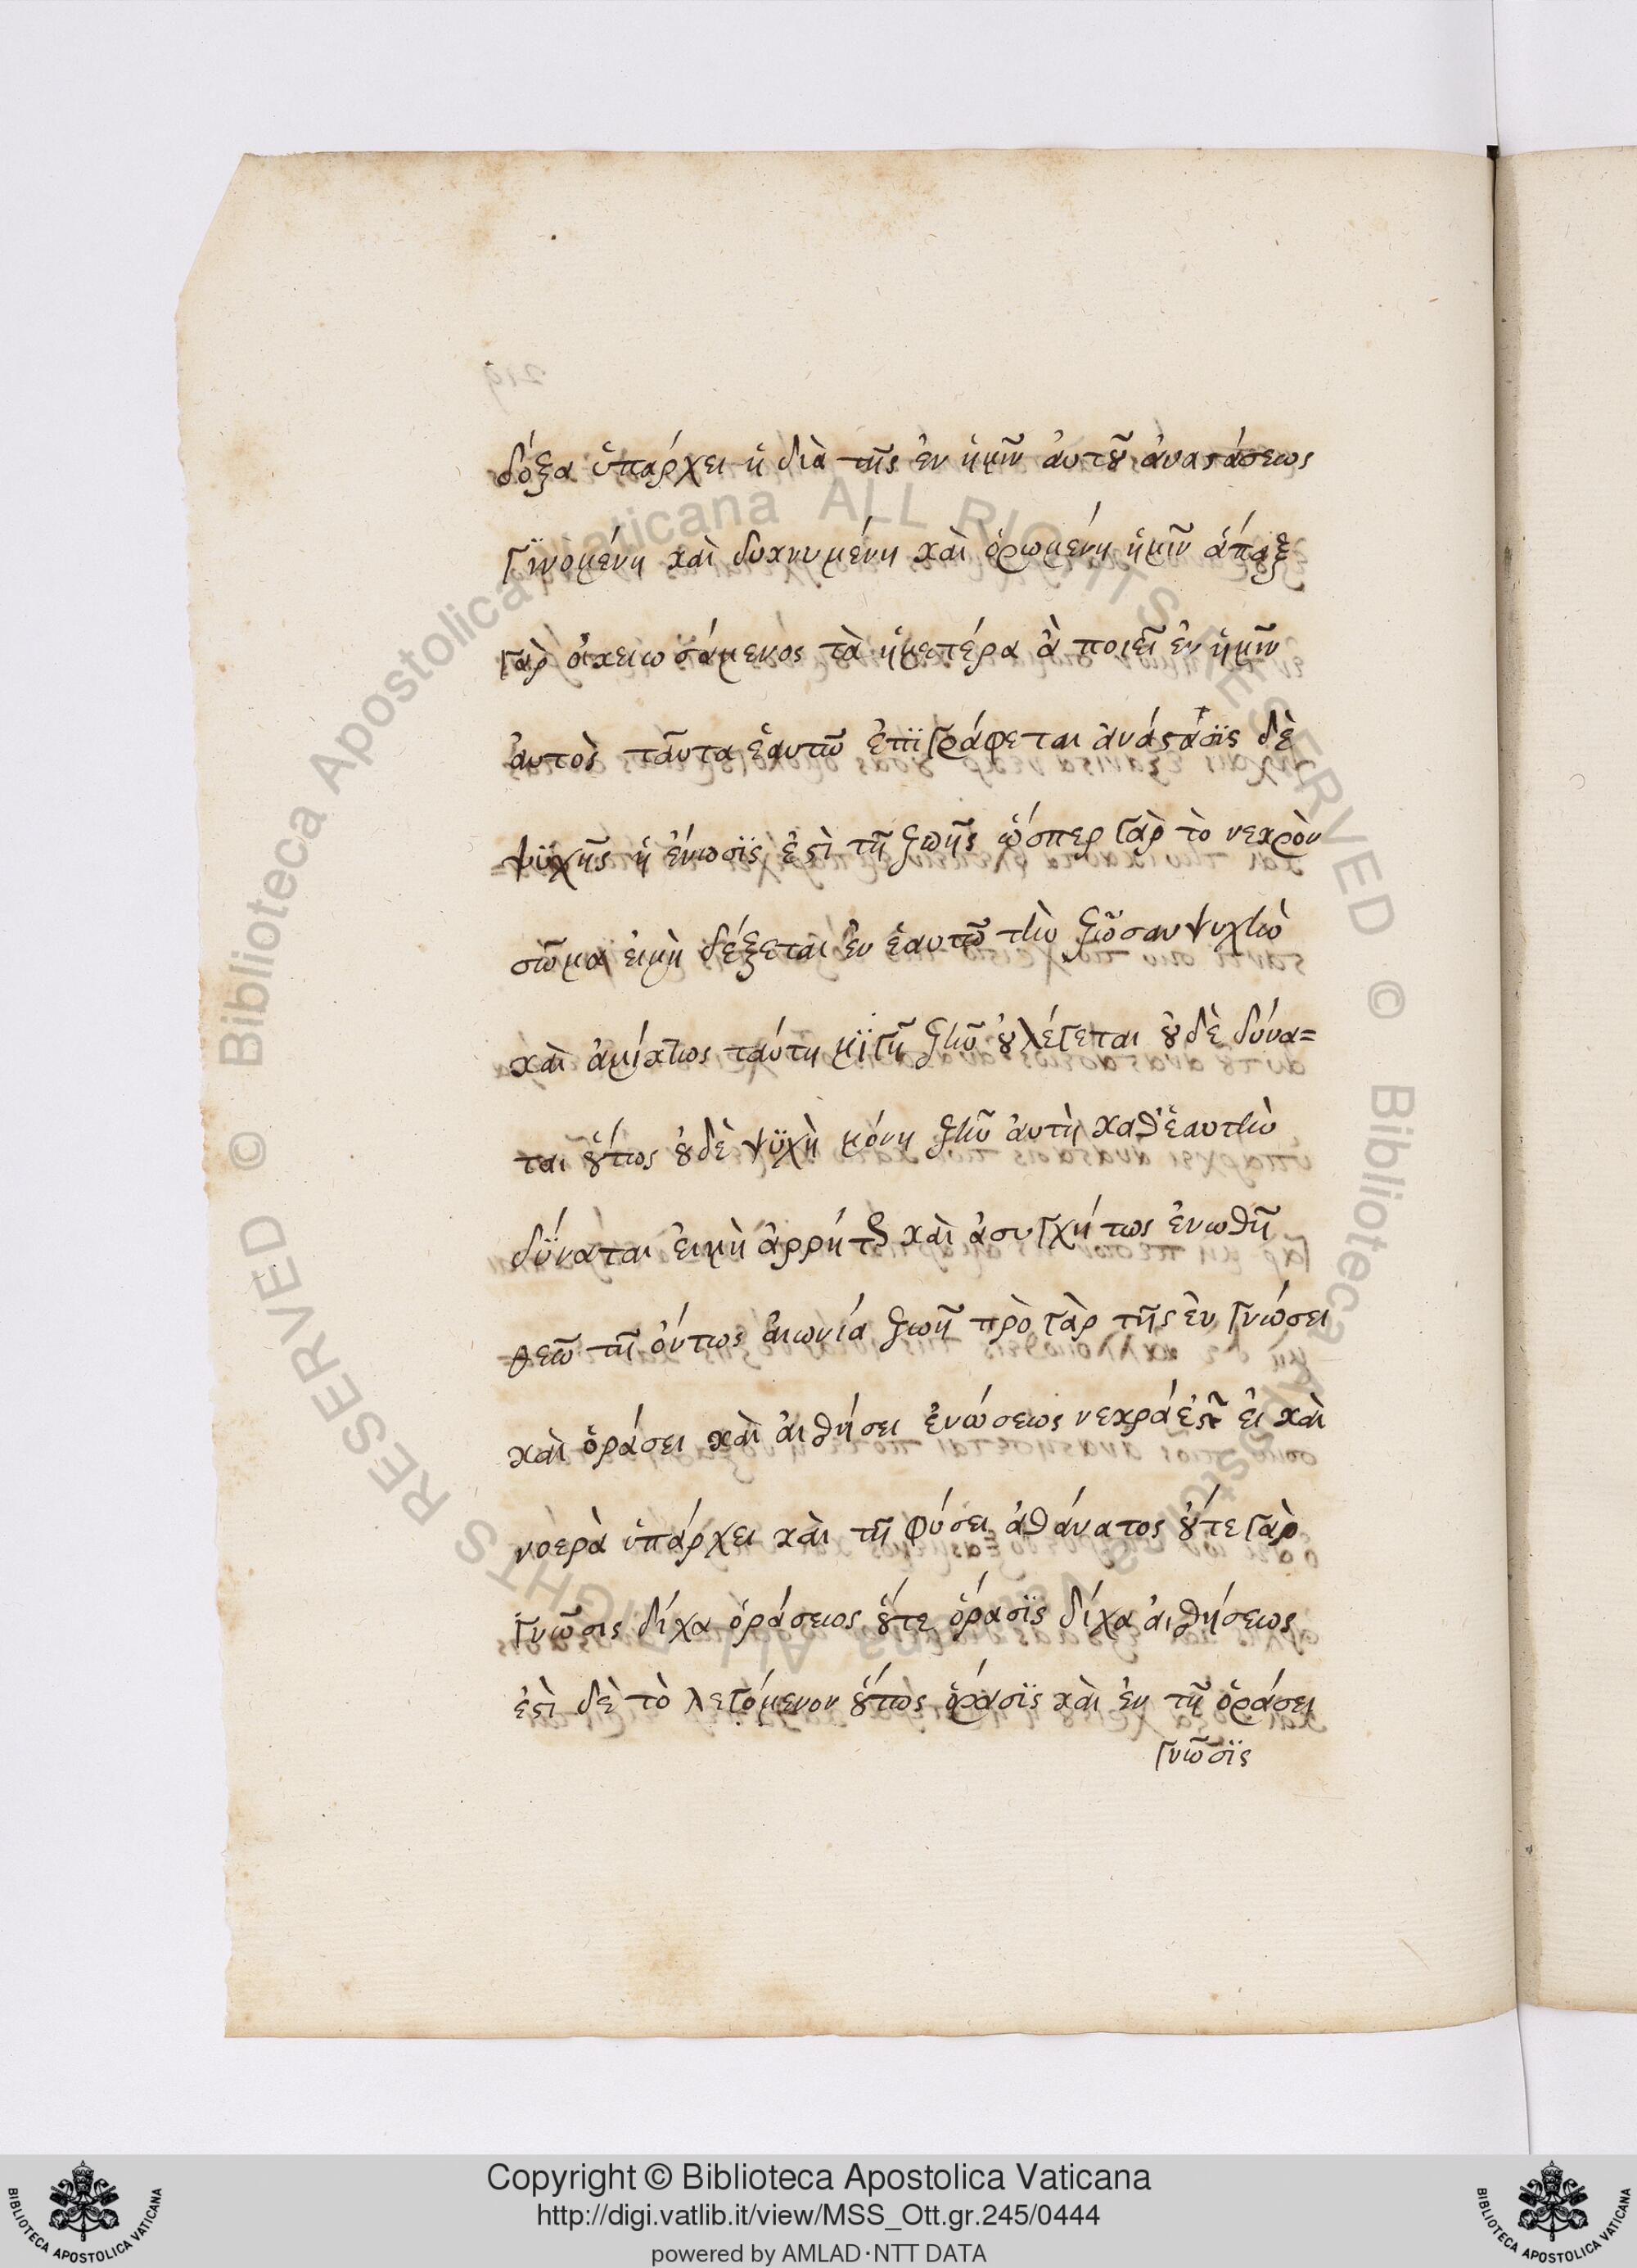 δόξα ὑπάρχει ἡ διὰ τῆς ἐν ἡμῖν ἀυτοῦ ἀναστάσεως
γϊνομένη καὶ δυκνυμένη καὶ ὁρωμένη ἡμῖν ἅπαξ
γὰρ οἰκειωσάμενος τὰ ἡμετέρα ἃ ποιεῖ ἐν ἡμῖν
ἀυτὸς ταῦτα ἑαυτῶ ἐπϊγράφεται ἀνάστασϊς δὲ
ψϋχῆς ἡ ἕνωσϊς ἐστὶ τῆ ζωῆς ὥσπερ γὰρ τὸ νεκρὸν
σῶμα ειμὴ δέξεται ἐν ἑαυτῶ τὴν ζῶσαν ψυχὴν
καὶ ἀμίκτως ταύτη μϊγῆ ζῆν οὐ λέγεται οὐδὲ δύνα=
ται οὕτως οὐδὲ ψϋχὴ μόνη ζῆν ἀυτὴ καθ' ἑαυτὴν
δύναται ειμὴ ἀρρήτως καὶ ἀσυγχήτως ἑνωθῆ
θεῶ τῆ ὄντως ἀιωνία ζωῆ πρὸ γὰρ τῆς ἐν γνώσει
καὶ ὁράσει καὶ ἀισθήσει ἑνώσεως νεκρά ἐστι ἐι καὶ
νοερὰ ὑπάρχει καὶ τῆ φύσει ἀθάνατος οὔτε γὰρ
γνῶσις δίχα ὁράσεως οὔτε ὅρασϊς δίχα ἀισθήσεως
ἐστὶ δὲ τὸ λεγόμενον οὕτως ὅρασϊς καὶ ἐν τῆ ὁράσει
γνῶσϊς
Copyright © Biblioteca Apostolica Vaticana
http://digi.vatlib.it/view/MSS_Ott.gr.245/0444
powered by AMLAD·NTT DATA
BIBLIOTECA APOSTOLICA VATICANA
BIBLIOTECA APOSTOLICA VATICANA
© Biblioteca Apostolica Vaticana ALL RIGHTS RESERVED © Biblioteca Apostolica Vaticana ALL RIGHTS RESERVED